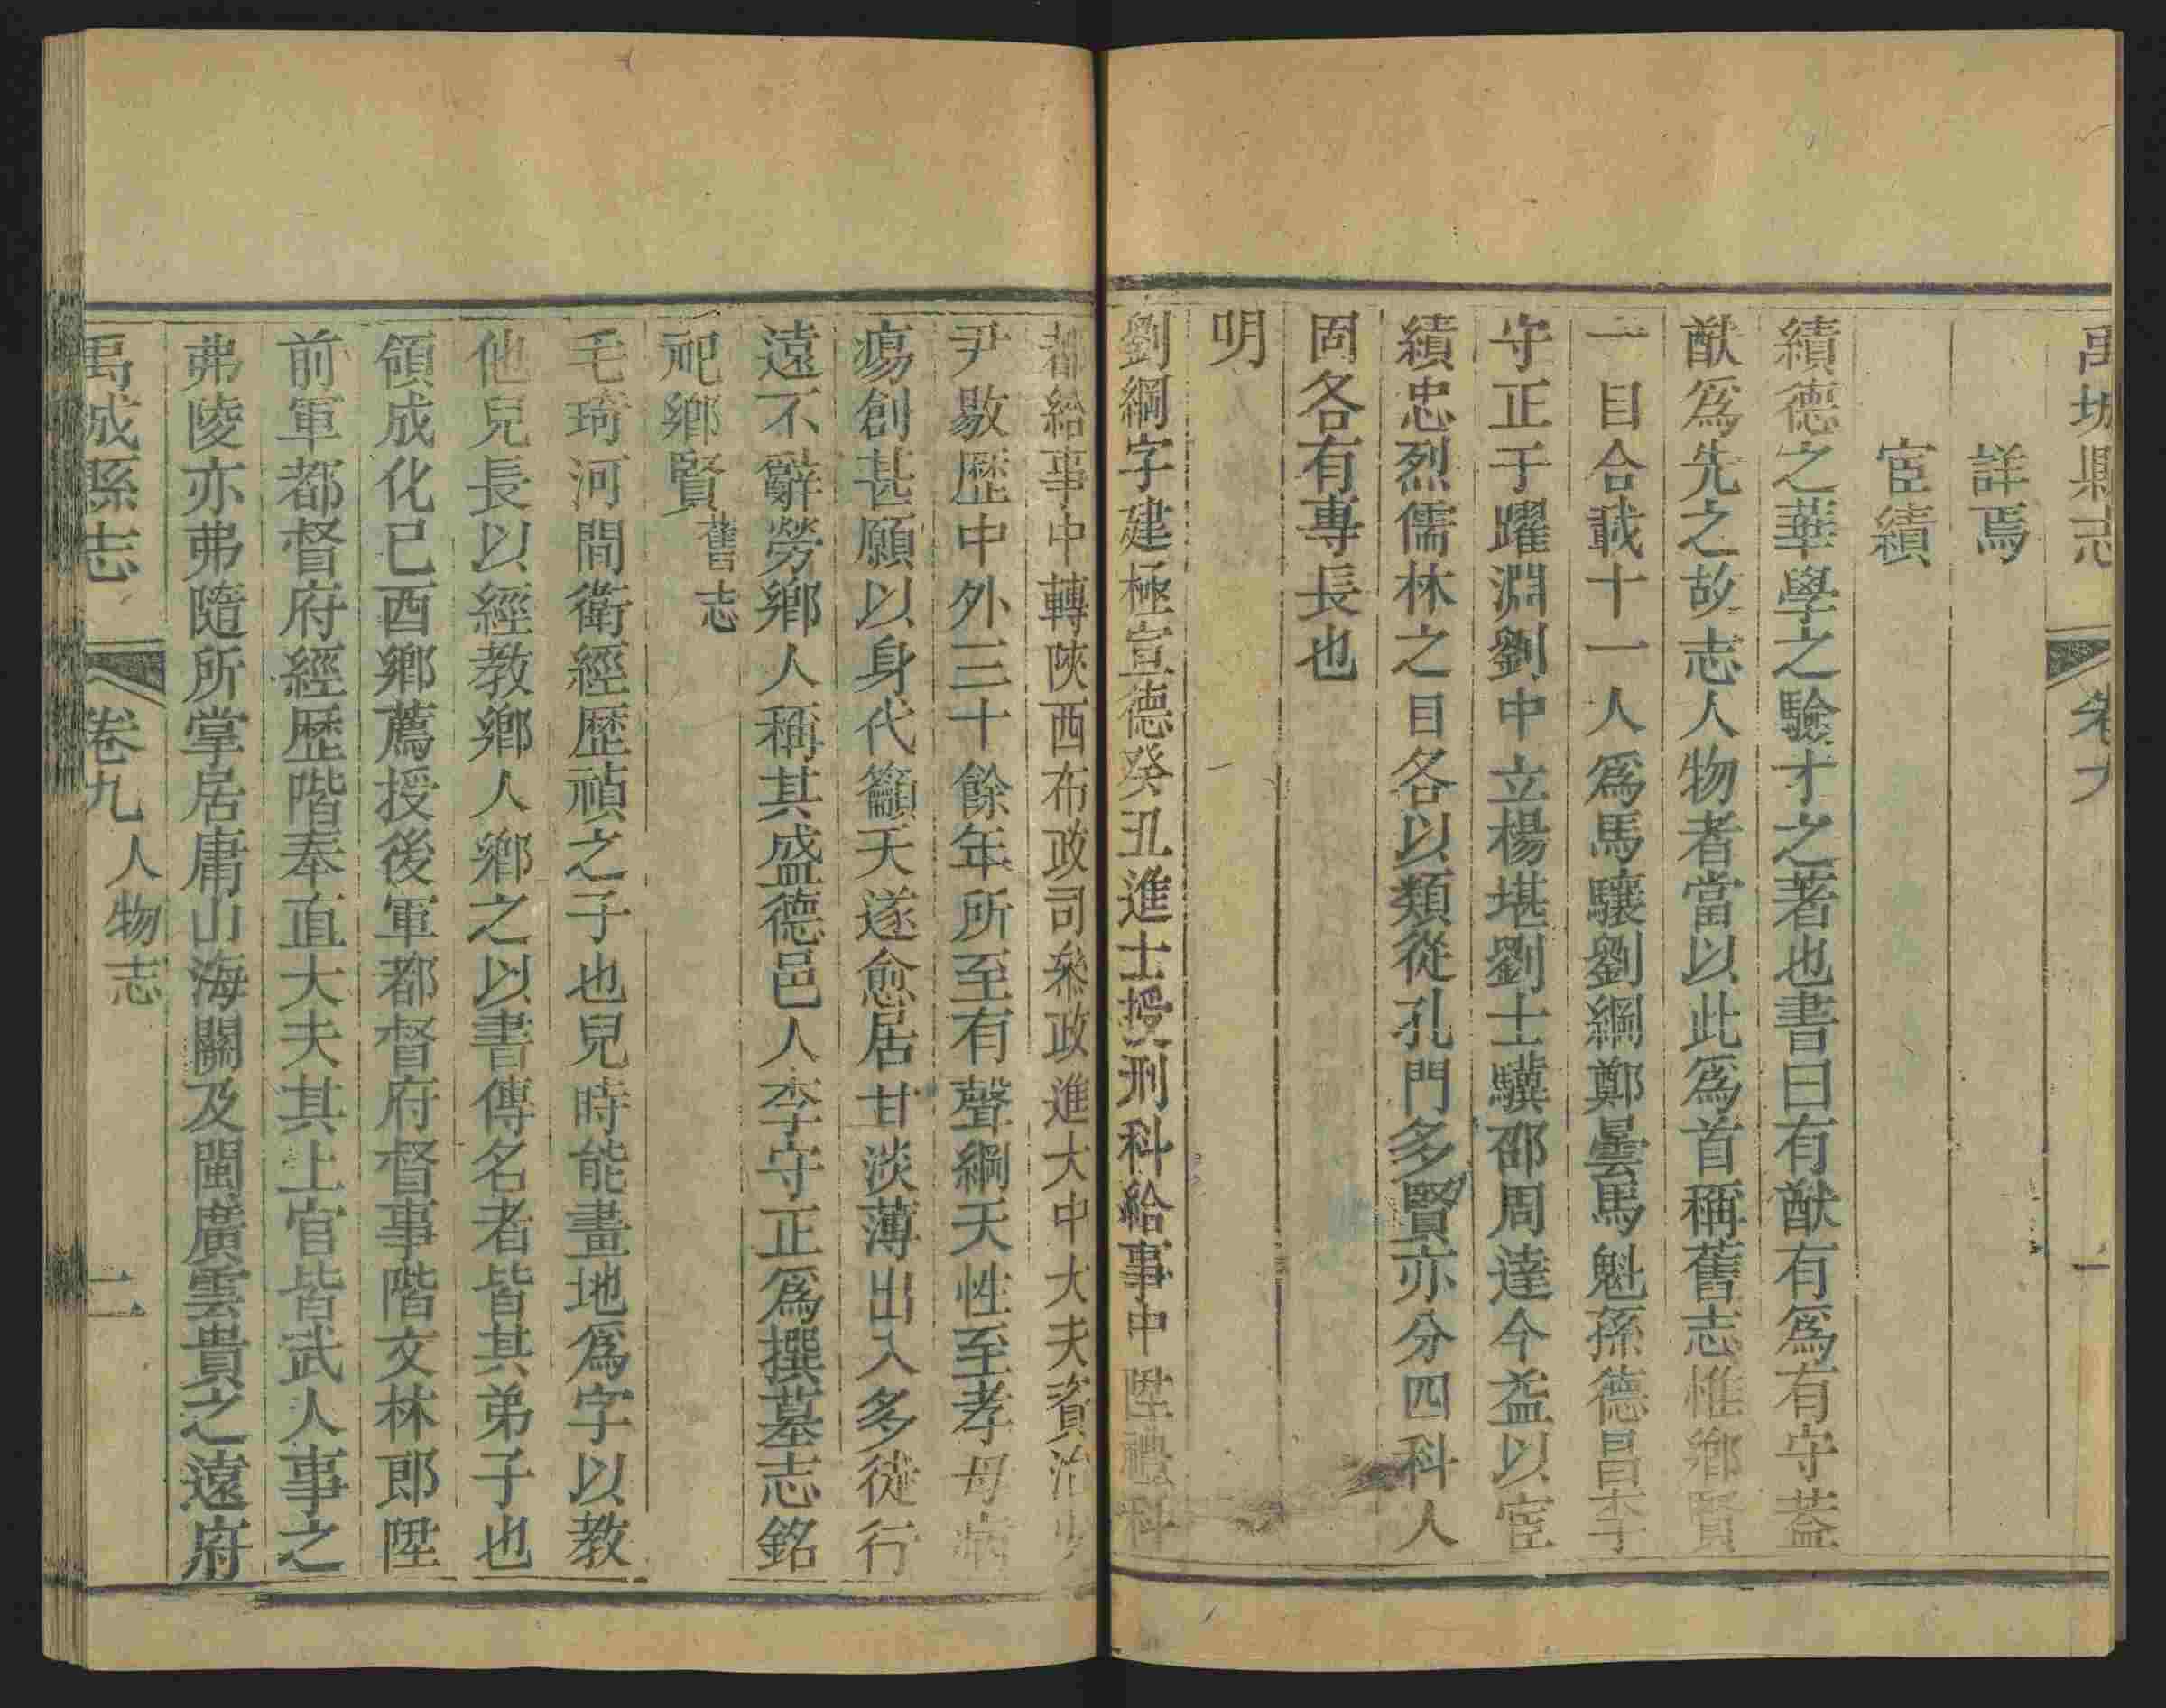 禹城縣志　卷九　一
詳焉
宦績
績德之華學之驗才之著也書曰有猷有爲有守蓋
猷爲先之故志人物者當以此爲首稱舊志惟鄉賢
一目合載十一人爲馬驤劉綱鄭曇馬魁孫德昌李
守正于躍淵劉中立楊堪劉士驥邵周達今益以宦
績忠烈儒林之目各以類從孔門多賢亦分四科人
固各有專長也
明
劉綱字建極宣德癸丑進士授刑科給事中陞禮科
都給事中轉陝西布政司叅政進大中大夫資治少
尹敭歷中外三十餘年所至有聲綱天性至孝母病
瘍創甚願以身代籲天遂愈居甘淡薄出入多徒行
遠不辭勞鄉人稱其盛德邑人李守正爲撰墓志銘
祀鄉賢舊志
毛琦河間衛經歷禎之子也兒時能畫地爲字以教
他兒長以經教鄉人鄉之以書傳名者皆其弟子也
領成化己酉鄉薦授後軍都督府督事階文林郎陞
前軍都督府經歷階奉直大夫其上官皆武人事之
弗陵亦弗隨所掌居庸山海關及閩廣雲貴之遠府
禹城縣志　卷九人物志　二